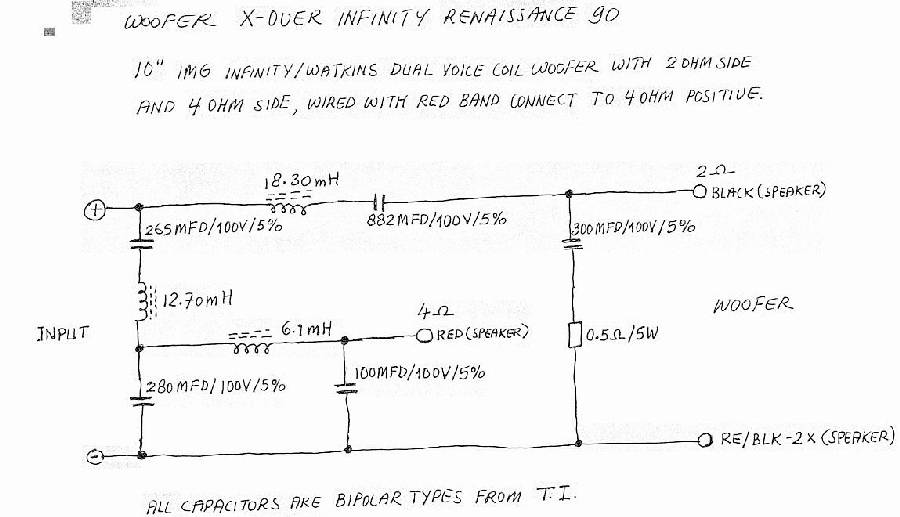 WOOFER X-OVER INFINITY RENAISSANCE 90
10" IMG INFINITY/WATKINS DUAL VOICE COIL WOOFER WITH 2 OHM SIDE
AND 4 OHM SIDE, WIRED WITH RED BAND CONNECT TO 4 OHM POSITIVE.
2Ω
18.30mH
+
BLACK (SPEAKER)
882MFD/100V/5%
265MFD/100V/5%
300MFD/100V/5%
12.70mH
WOOFER
4Ω
INPUT
6.1mH
RED (SPEAKER)
0.5Ω/5W
100MFD/100V/5%
280MFD/100V/5%
RE/BLK-2X (SPEAKER)
-
ALL CAPACITORS ARE BIPOLAR TYPES FROM T.I.